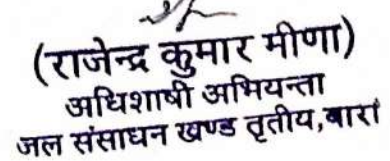 (राजेन्द्र कुमार मीणा)
अधिशाषी अभियन्ता
जल संसाधन खण्ड तृतीय,बारां